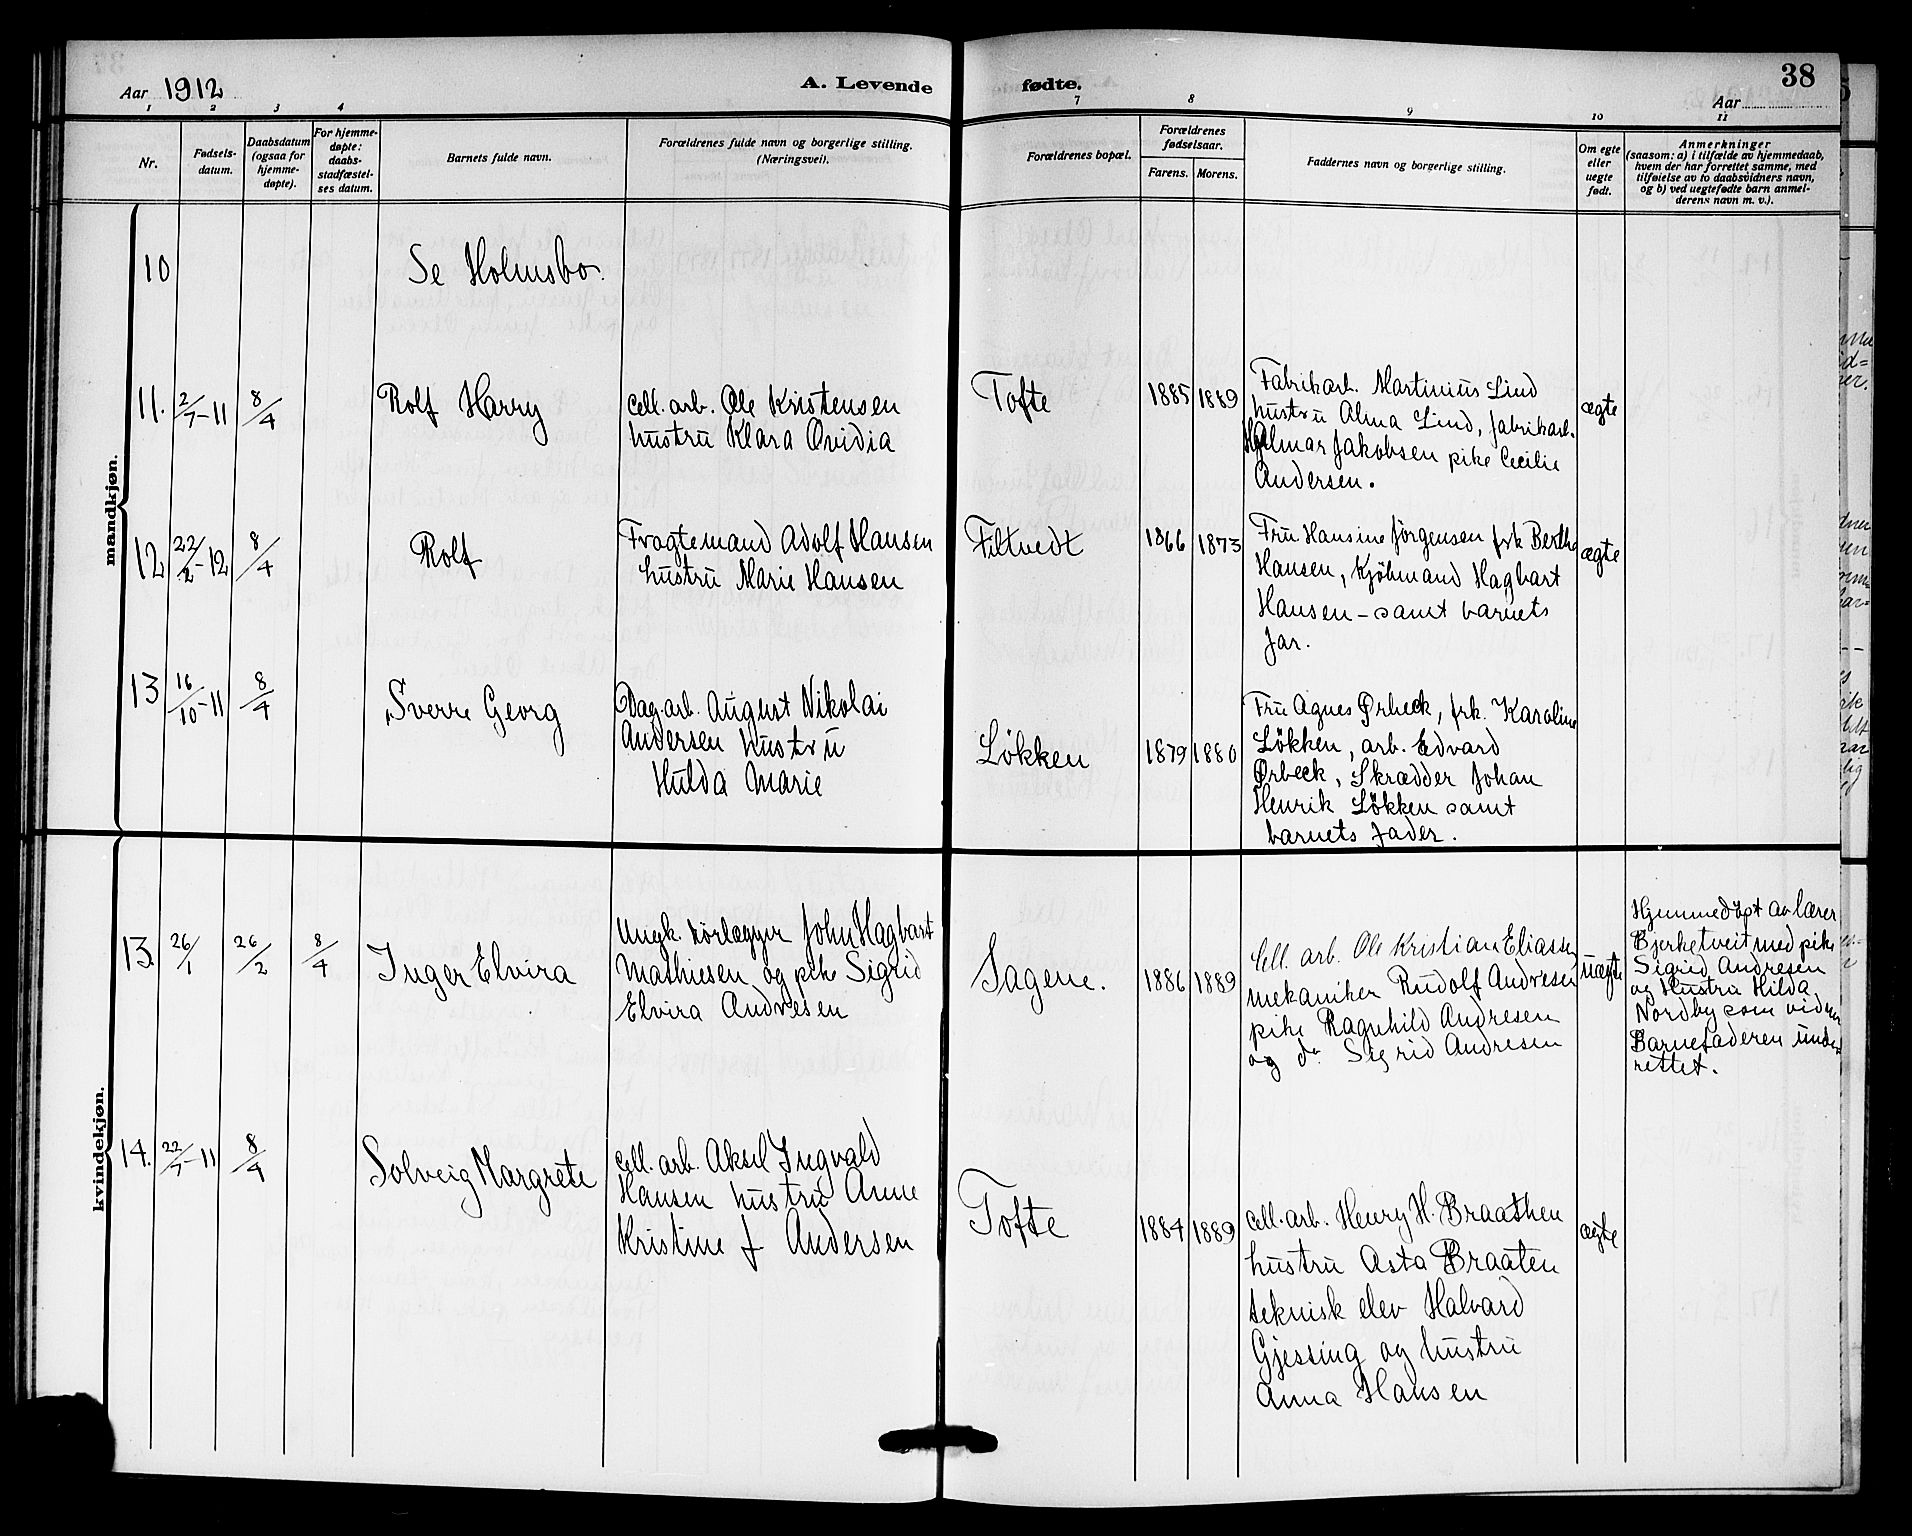 38
Aar 1912
A. Levende fødte.
Aar
1 2 3 4 7 8 9 10 11
Nr.
Fødsels-
datum.
Daabsdatum
(ogsaa for
hjemme-
døpte).
For hjemme-
døpte:
daabs-
stadfæstel-
ses datum.
Barnets fulde navn.
Forældrenes fulde navn og borgerlige stilling.
(Næringsvei).
Forældrenes bopæl.
Forældrenes
fødselsaar.
Farens. Morens.
Faddernes navn og borgerlige stilling.
Om egte
eller
uegte
født.
Anmerkninger
(saasom: a) i tilfælde av hjemmedaab,
hvem der har forrettet samme, med
tilføielse av to daabsvidners navn,
og b) ved uegtefødte barn anmel-
derens navn m. v.).
mandkjøn.
10 Se Holmsbo.
11. 2/7-11 8/4 Rolf Harry
cell. arb. Ole Kristensen
hustru Klara Ovidia
Tofte 1885 1889
Fabrikarb. Martinius Lind
hustru Alma Lind, fabrikarb.
Hjalmar Jakobsen pike Cecilie
Andersen.
ægte
12 22/2-12 8/4 Rolf
Fragtemand Adolf Hansen
hustru Marie Hansen
Filtvedt 1866 1873
Fru Hansine Jörgensen frk Berthe
Hansen, Kjöbmand Hagbart
Hansen - samt barnets
far.
ægte
13 16/10-11 8/4 Sverre Georg
Dag.arb. August Nikolai
Andersen hustru
Hulda Marie
Løkken 1879 1880
Fru Agnes Ørbeck, frk. Karoline
Løkken, arb. Edvard
Ørbeck, Skrædder Johan
Henrik Løkken samt
barnets fader.
kvindekjøn.
13. 26/1 26/2 8/4 Inger Elvira
Ungk. rörlægger John Hagbart
Mathiesen og pike Sigrid
Elvira Andresen
Sagene. 1886 1889
Cell. arb. Ole Kristian Eliassen
mekaniker Rudolf Andresen
pike Ragnhild Andresen
og do Sigrid Andresen
uægte
Hjemmedöpt av lærer
Bjerketveit med pike
Sigrid Andresen
og Hustru Hilda
Nordby som vidner
Barnefaderen under
rettet.
14. 22/7-11 8/4 Solveig Margrete
cell. arb. Aksel Ingvald
Hansen hustru Anne
Kristine f Andersen
Tofte 1884 1889
cell. arb. Henry H. Braathen
hustru Asta Braaten
teknisk elev Halvard
Gjessing og hustru
Anna Hansen
ægte